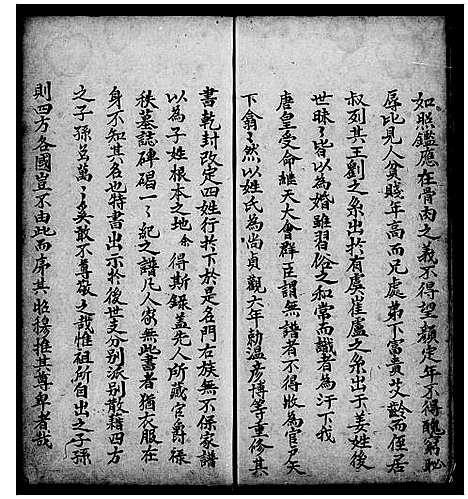 如照鑑應在骨肉之義不得望顏定年不得醜窮恥
辱比見人貧賤年高而兄處弟下富貴艾齡而侄居
叔列其王劉之系出於有虞崔盧之系出于姜姓後
世昧〻皆以為婚雖習俗之和常而識者為汗下我
唐皇受命继天大會群臣謂無譜者不得收為官户天
下翕〻然以姓氏為尚貞觀六年勅溫彦博等重修其
書乾封改定四姓行於下於是名門右族無不保家譜
以為子姓根本之地余得斯錄盖先人所藏官爵祿
秩墓誌碑碣一〻紀之譜凡人家無此書者猶衣服在
身不知其名也特書出示於後世支分別派别散籍四方
之子孫名萬〻矣敢不尊敬之哉惟祖所自出之子孫
則四方各國豈不由此而序其昭穆推其尊卑者哉